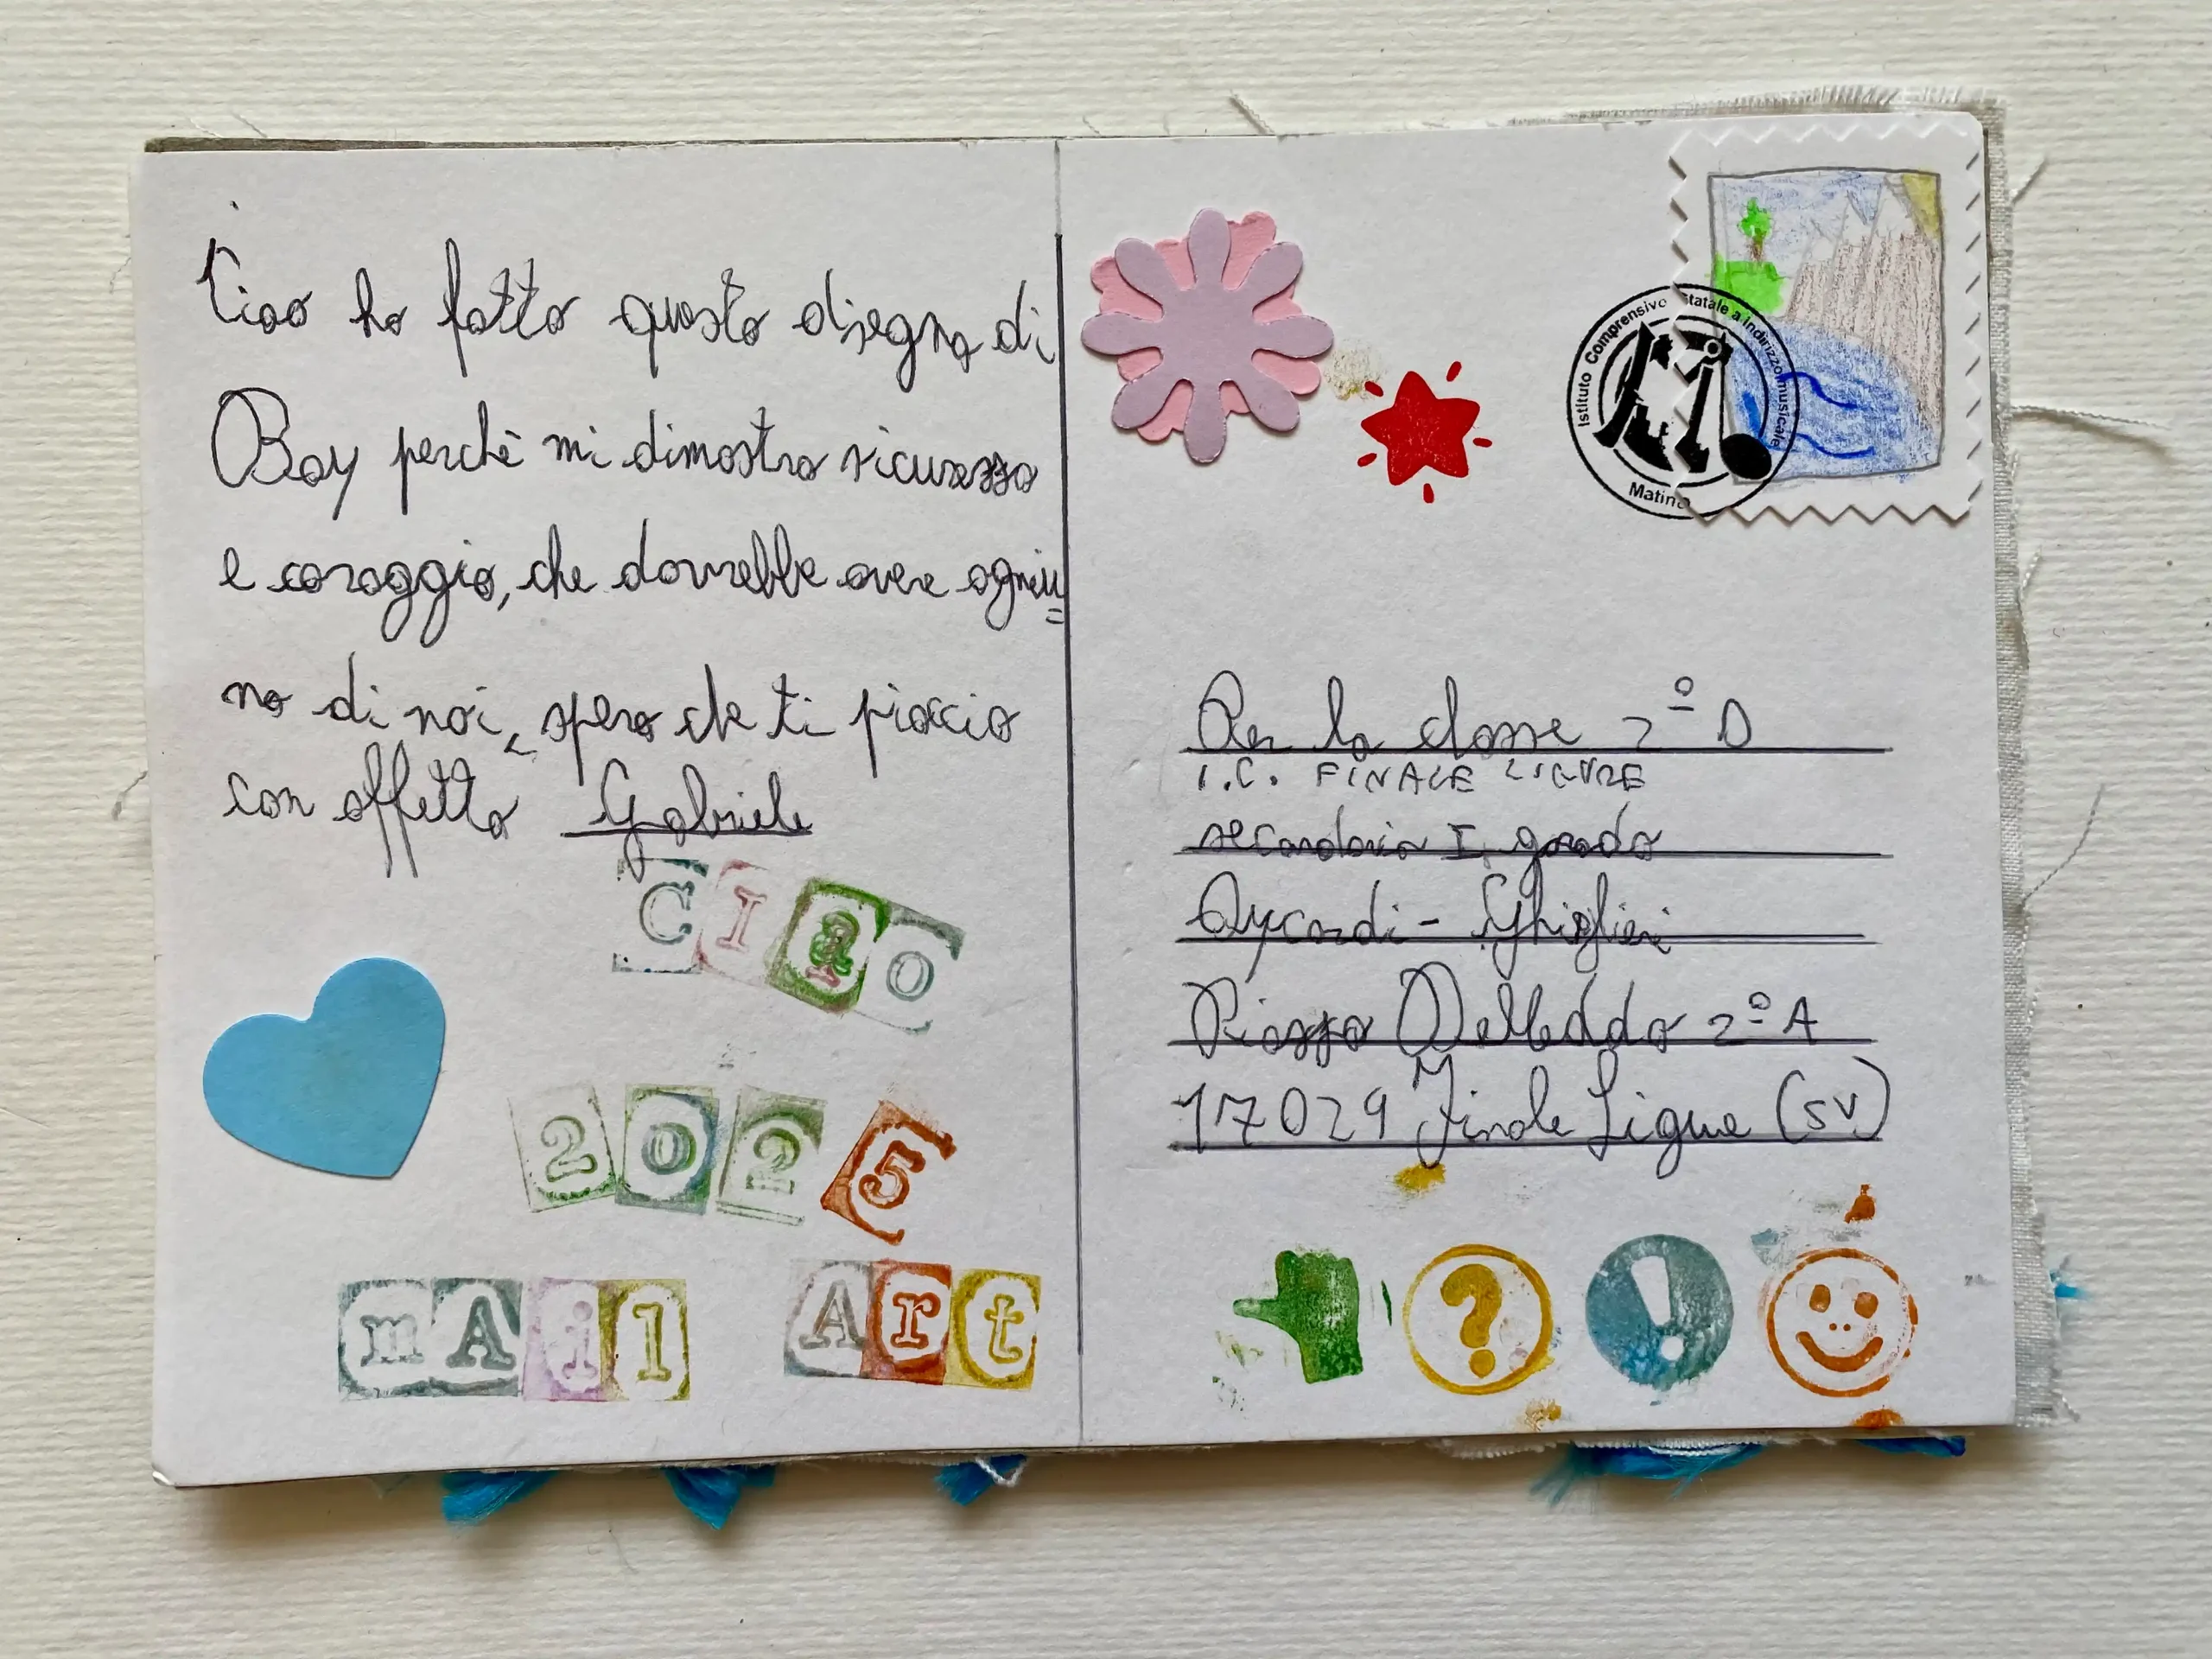 Ciao ho fatto questo disegno di
Boy perchè mi dimostra sicurezza
e coraggio, che dovrebbe avere ogniu=
no di noi, spero che ti piaccia
con affetto Gabriele
CIao
2025
mAil Art
Istituto Comprensivo Statale a Indirizzo musicale
Matino
Per la classe 2º D
I.C. FINALE LIGURE
secondaria I grado
Aycardi - Ghiglieri
Piazza Deledda 2º A
17029 Finale Ligure (SV)
? !